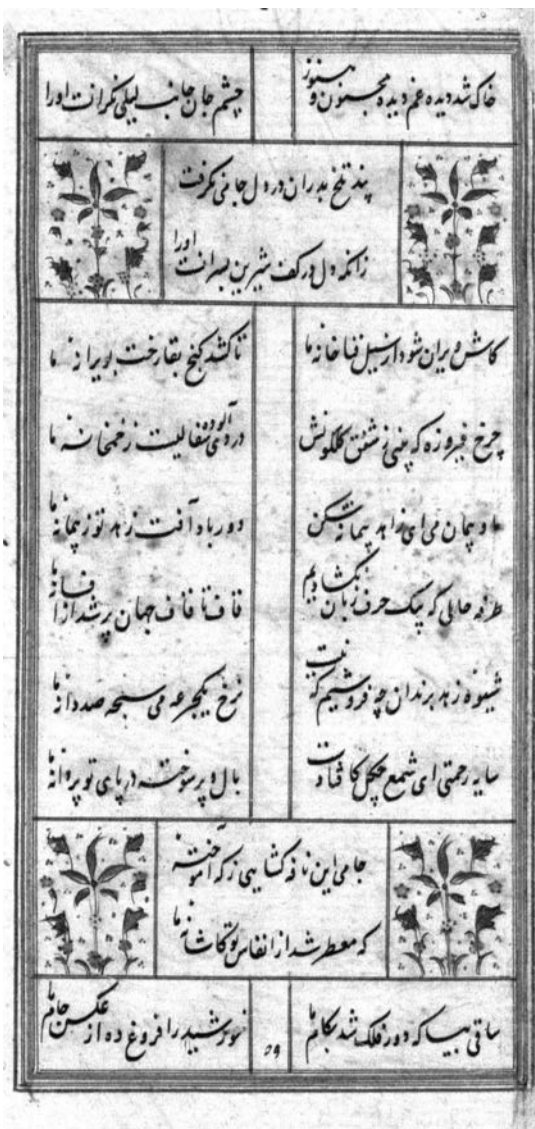 خاک شد دیده غم دیده مجنون و هنوز
چشم جان جانب لیلی نگرانست او را
پند تلخ پدران در دل جامی نگرفت
زانکه دل در کف شیرین پسرانست او را
کاش ویران شود از سیل فنا خانه ما
تا کشد گنج بقا رخت بویرانه ما
چرخ فیروزه که بینی ز شفق گلگونش
درد می آلوده سفالیست ز خمخانه ما
ما و پیمان می ای زاهد پیمانه شکن
دور باد آفت زهد تو ز پیمانه ما
طرفه حالی که بیک حرف زبان نگشادیم
قاف تا قاف جهان پر شد از افسانه ما
شیوه زهد برندان چه فروشیم که نیست
نرخ یکجرعه می سبحه صد دانه ما
سایه رحمتی ای شمع چگل کافتادست
بال و پر سوخته در پای تو پروانه ما
جامی این نافه گشایی ز که آموخته
که معطر شد از انفاس تو کاشانه ما
ساقی بیا که دور فلک شد بکام ما
خورشید را فروغ ده از عکس جام ما